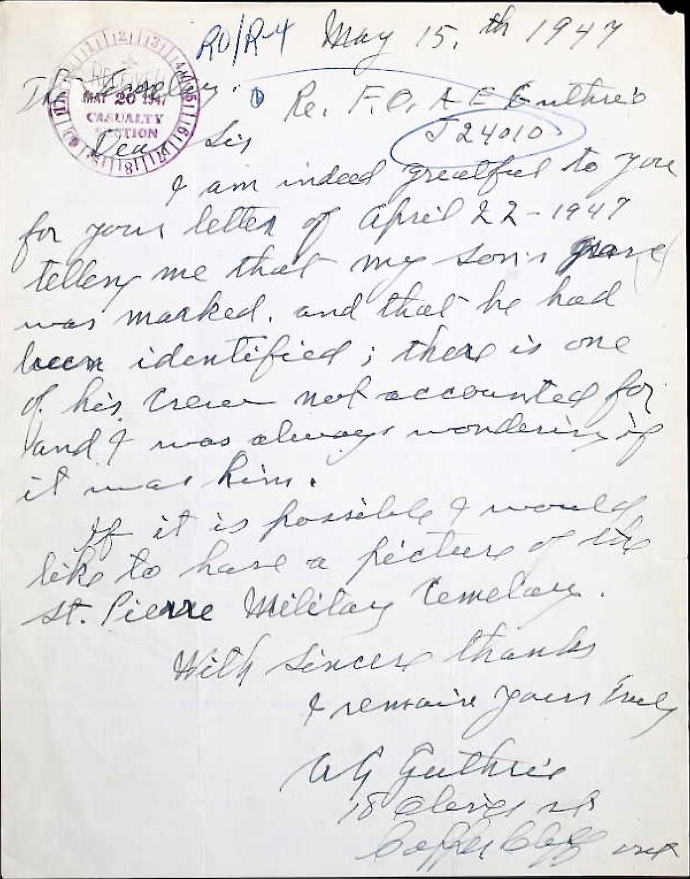 RO/R-4 May 15, th 1947
The Secretary.
RECEIVED
MAY 20 1947
CASUALTY
SECTION
Re. F.O. A E Guthrie
J24010
Dear Sir
I am indeed greatful to you
for your letter of April 22-1947
telling me that my son's grave
was marked. and that he had
been identified; there is one
of his crew not accounted for
and I was always wondering if
it was him.
If it is possible I would
like to have a picture of the
St. Pierre Military Cemetary.
With sincere thanks
I remain yours truly
Guthrie
18
Copper Cliff Ont